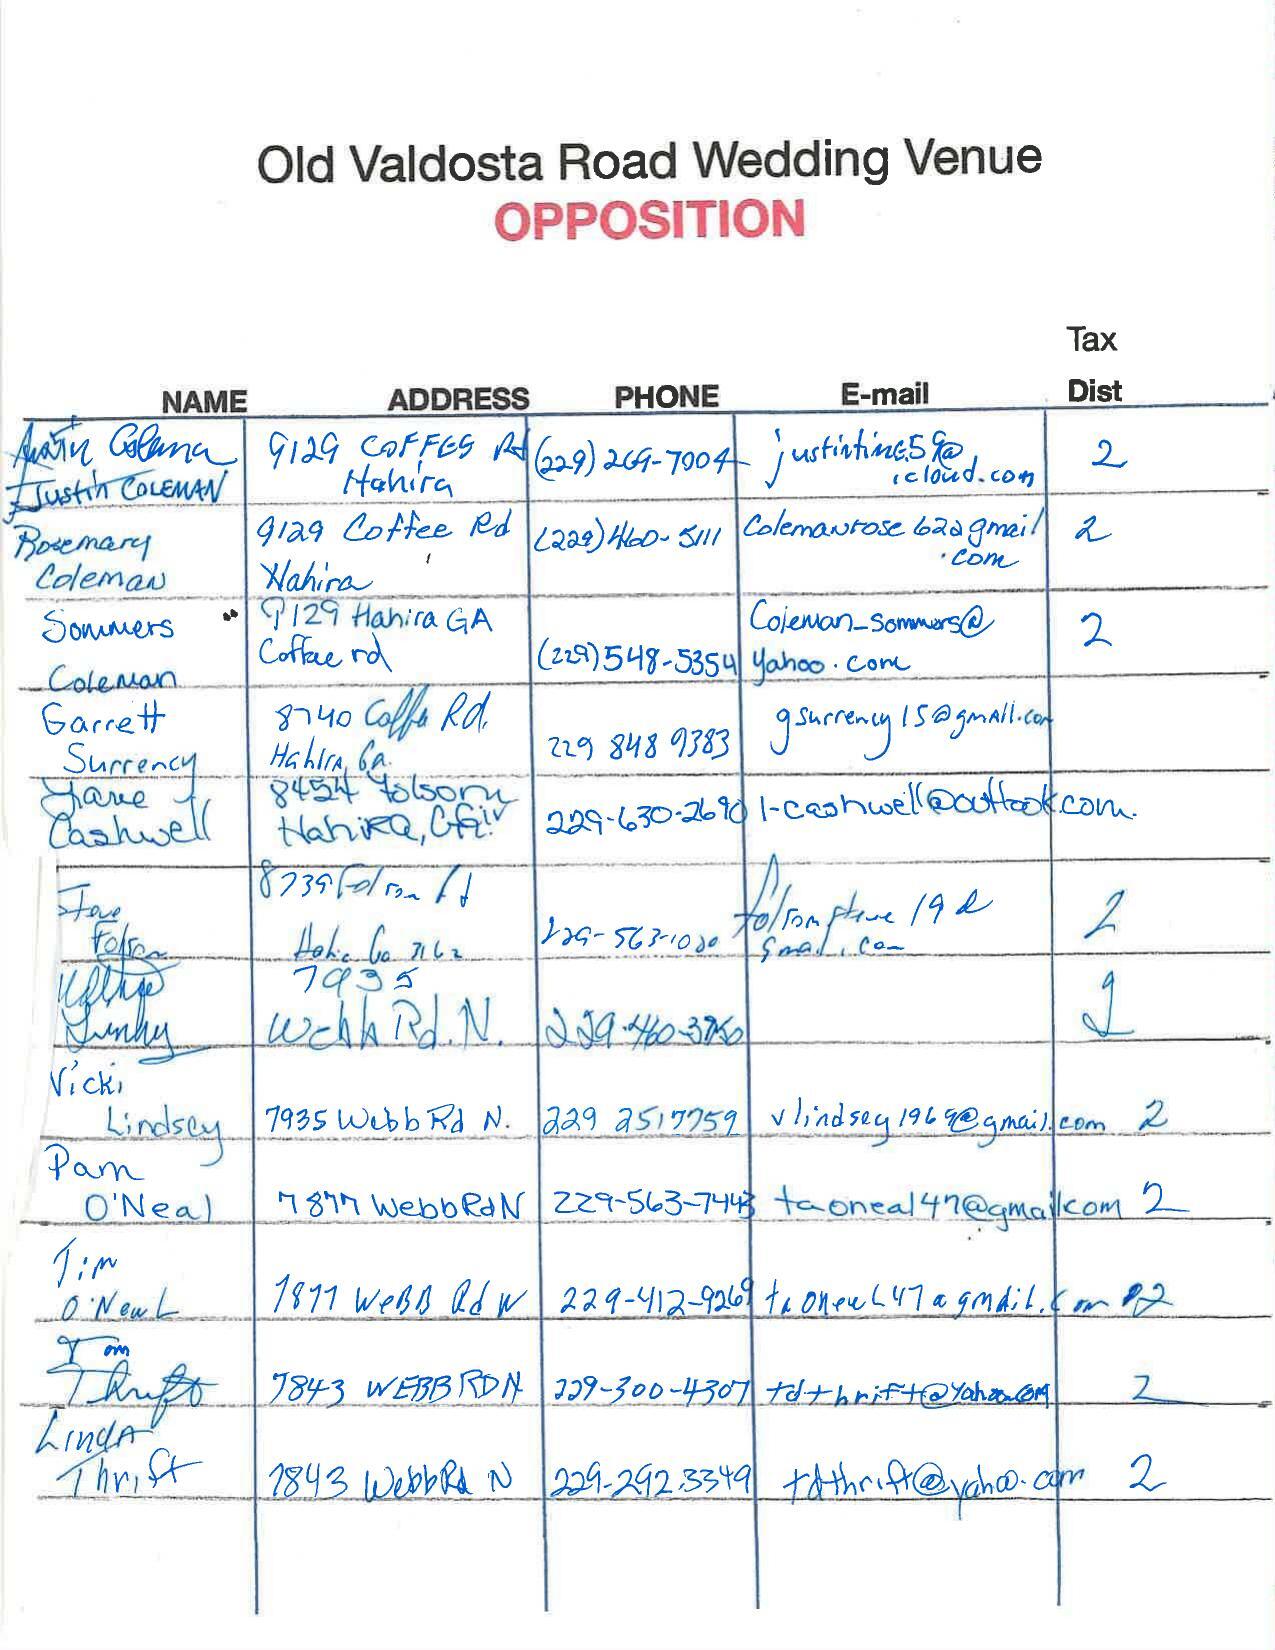 Old Valdosta Road Wedding Venue
OPPOSITION
Tax
NAME ADDRESS PHONE E-mail Dist
Justin COLEMAN 9129 COFFEE Rd Hahira (229) 269-7004 icloud.com 2
Rosemary Coleman 9129 Coffee Rd Hahira (229) 460-5111 Colemanrose62@gmail.com 2
Sommers Coleman 9129 Hahira GA Coffee rd (229) 548-5354 Coleman_Sommers@yahoo.com 2
Garrett Surrency 8740 Coffee Rd. Hahira, Ga. 229 848 9383 gsurrency15@gmail.com
Cashwell 8454 Folsom Hahira, Ga. 229-630-2690 l-cashwell@outlook.com.
Steve Folsom 8739 Folsom Rd 229-563-1080 2
7935 Webb Rd. N. 229-460-3750 2
Vicki Lindsey 7935 Webb Rd N. 229 2517759 vlindsey1969@gmail.com 2
Pam O'Neal 7877 Webb Rd N 229-563-7443 taoneal47@gmail.com 2
Tim O'Neal 7877 WeBB Rd N 229-412-9269 taoneal47@gmail.com 2
Tom Thrift 7843 WEBB RD N 229-300-4307 tdthrift@yahoo.com 2
LINDA Thrift 7843 Webb Rd N 229-292.3349 tdthrift@yahoo.com 2